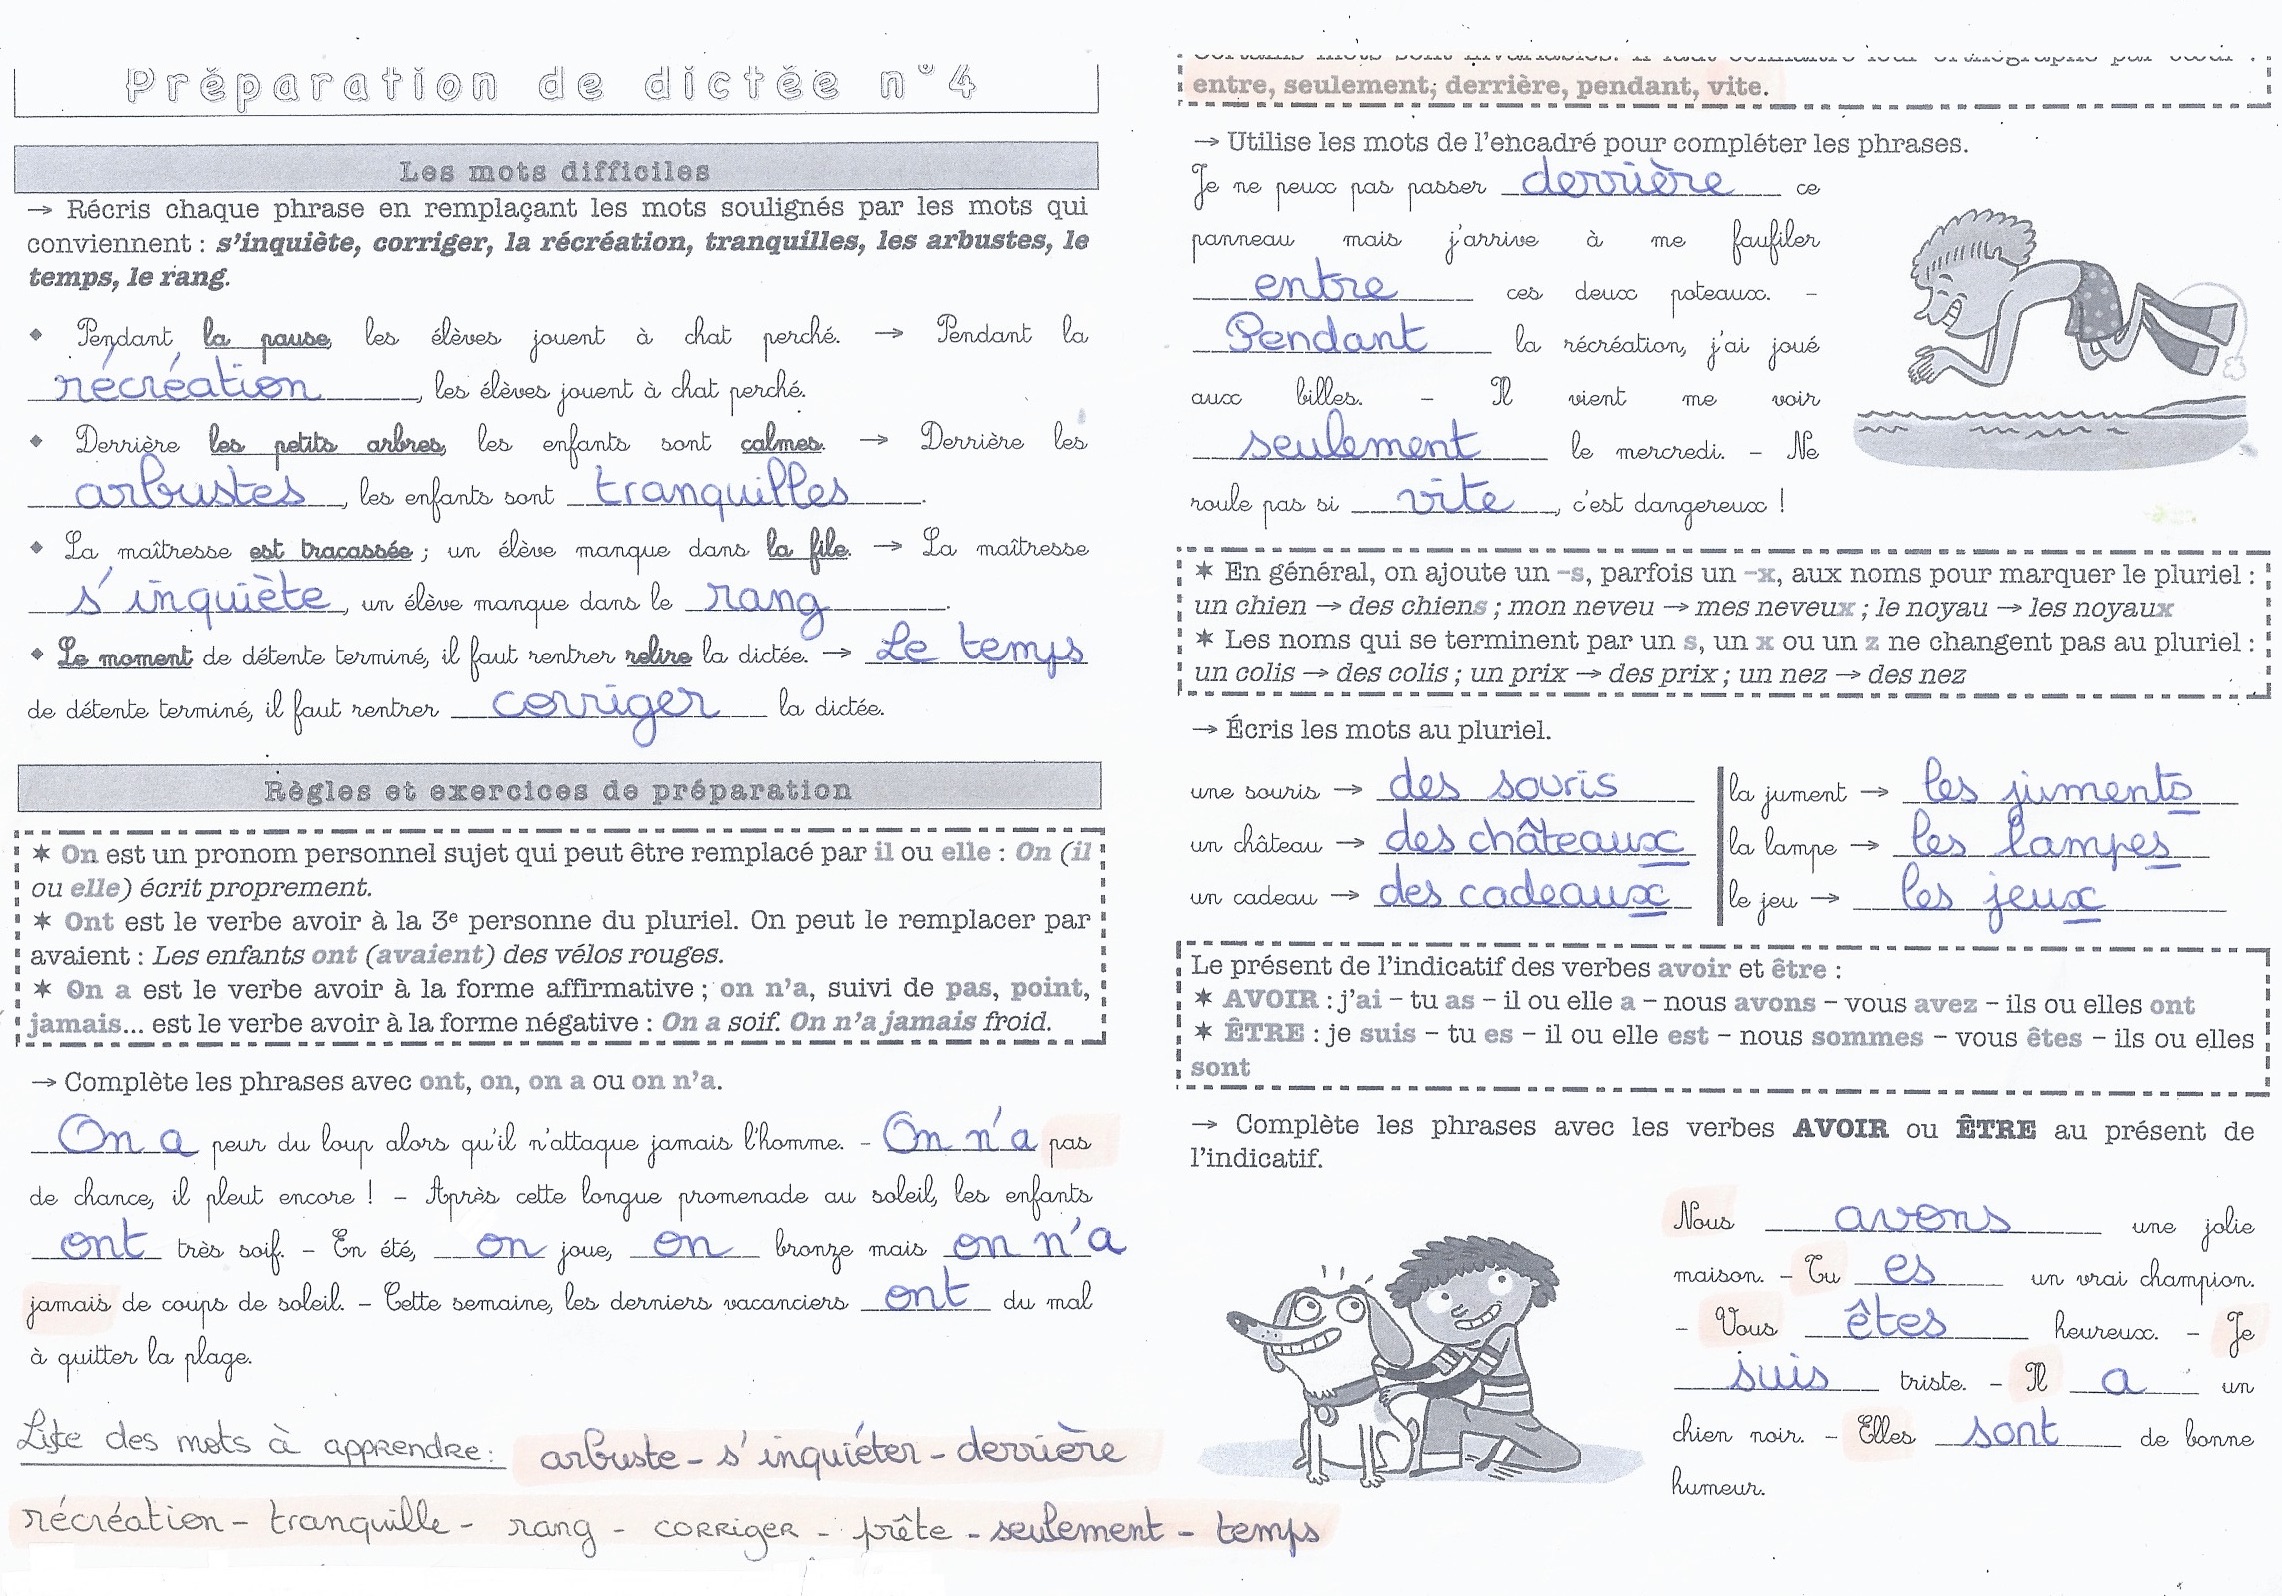 Préparation de dictée n°4
Les mots difficiles
→ Récris chaque phrase en remplaçant les mots soulignés par les mots qui
conviennent : s'inquiète, corriger, la récréation, tranquilles, les arbustes, le
temps, le rang.
◆ Pendant la pause, les élèves jouent à chat perché. → Pendant la
récréation, les élèves jouent à chat perché.
◆ Derrière les petits arbres, les enfants sont calmes. → Derrière les
arbustes, les enfants sont tranquilles.
◆ La maîtresse est tracassée ; un élève manque dans la file. → La maîtresse
s'inquiète, un élève manque dans le rang.
◆ Le moment de détente terminé, il faut rentrer relire la dictée. → Le temps
de détente terminé, il faut rentrer corriger la dictée.
Règles et exercices de préparation
✶ On est un pronom personnel sujet qui peut être remplacé par il ou elle : On (il
ou elle) écrit proprement.
✶ Ont est le verbe avoir à la 3e personne du pluriel. On peut le remplacer par
avaient : Les enfants ont (avaient) des vélos rouges.
✶ On a est le verbe avoir à la forme affirmative ; on n'a, suivi de pas, point,
jamais... est le verbe avoir à la forme négative : On a soif. On n'a jamais froid.
→ Complète les phrases avec ont, on, on a ou on n'a.
On a peur du loup alors qu'il n'attaque jamais l'homme. – On n'a pas
de chance, il pleut encore ! – Après cette longue promenade au soleil, les enfants
ont très soif. – En été, on joue, on bronze mais on n'a
jamais de coups de soleil. – Cette semaine, les derniers vacanciers ont du mal
à quitter la plage.
Liste des mots à apprendre : arbuste - s'inquiéter - derrière
récréation - tranquille - rang - corriger - prête - seulement - temps
Certains mots sont invariables. Il faut connaître leur orthographe par cœur :
entre, seulement, derrière, pendant, vite.
→ Utilise les mots de l'encadré pour compléter les phrases.
Je ne peux pas passer derrière ce
panneau mais j'arrive à me faufiler
entre ces deux poteaux. –
Pendant la récréation, j'ai joué
aux billes. – Il vient me voir
seulement le mercredi. – Ne
roule pas si vite, c'est dangereux !
✶ En général, on ajoute un -s, parfois un -x, aux noms pour marquer le pluriel :
un chien → des chiens ; mon neveu → mes neveux ; le noyau → les noyaux
✶ Les noms qui se terminent par un s, un x ou un z ne changent pas au pluriel :
un colis → des colis ; un prix → des prix ; un nez → des nez
→ Écris les mots au pluriel.
une souris → des souris
un château → des châteaux
un cadeau → des cadeaux
la jument → les juments
la lampe → les lampes
le jeu → les jeux
Le présent de l'indicatif des verbes avoir et être :
✶ AVOIR : j'ai – tu as – il ou elle a – nous avons – vous avez – ils ou elles ont
✶ ÊTRE : je suis – tu es – il ou elle est – nous sommes – vous êtes – ils ou elles
sont
→ Complète les phrases avec les verbes AVOIR ou ÊTRE au présent de
l'indicatif.
Nous avons une jolie
maison. – Tu es un vrai champion.
– Vous êtes heureux. – Je
suis triste. – Il a un
chien noir. – Elles sont de bonne
humeur.